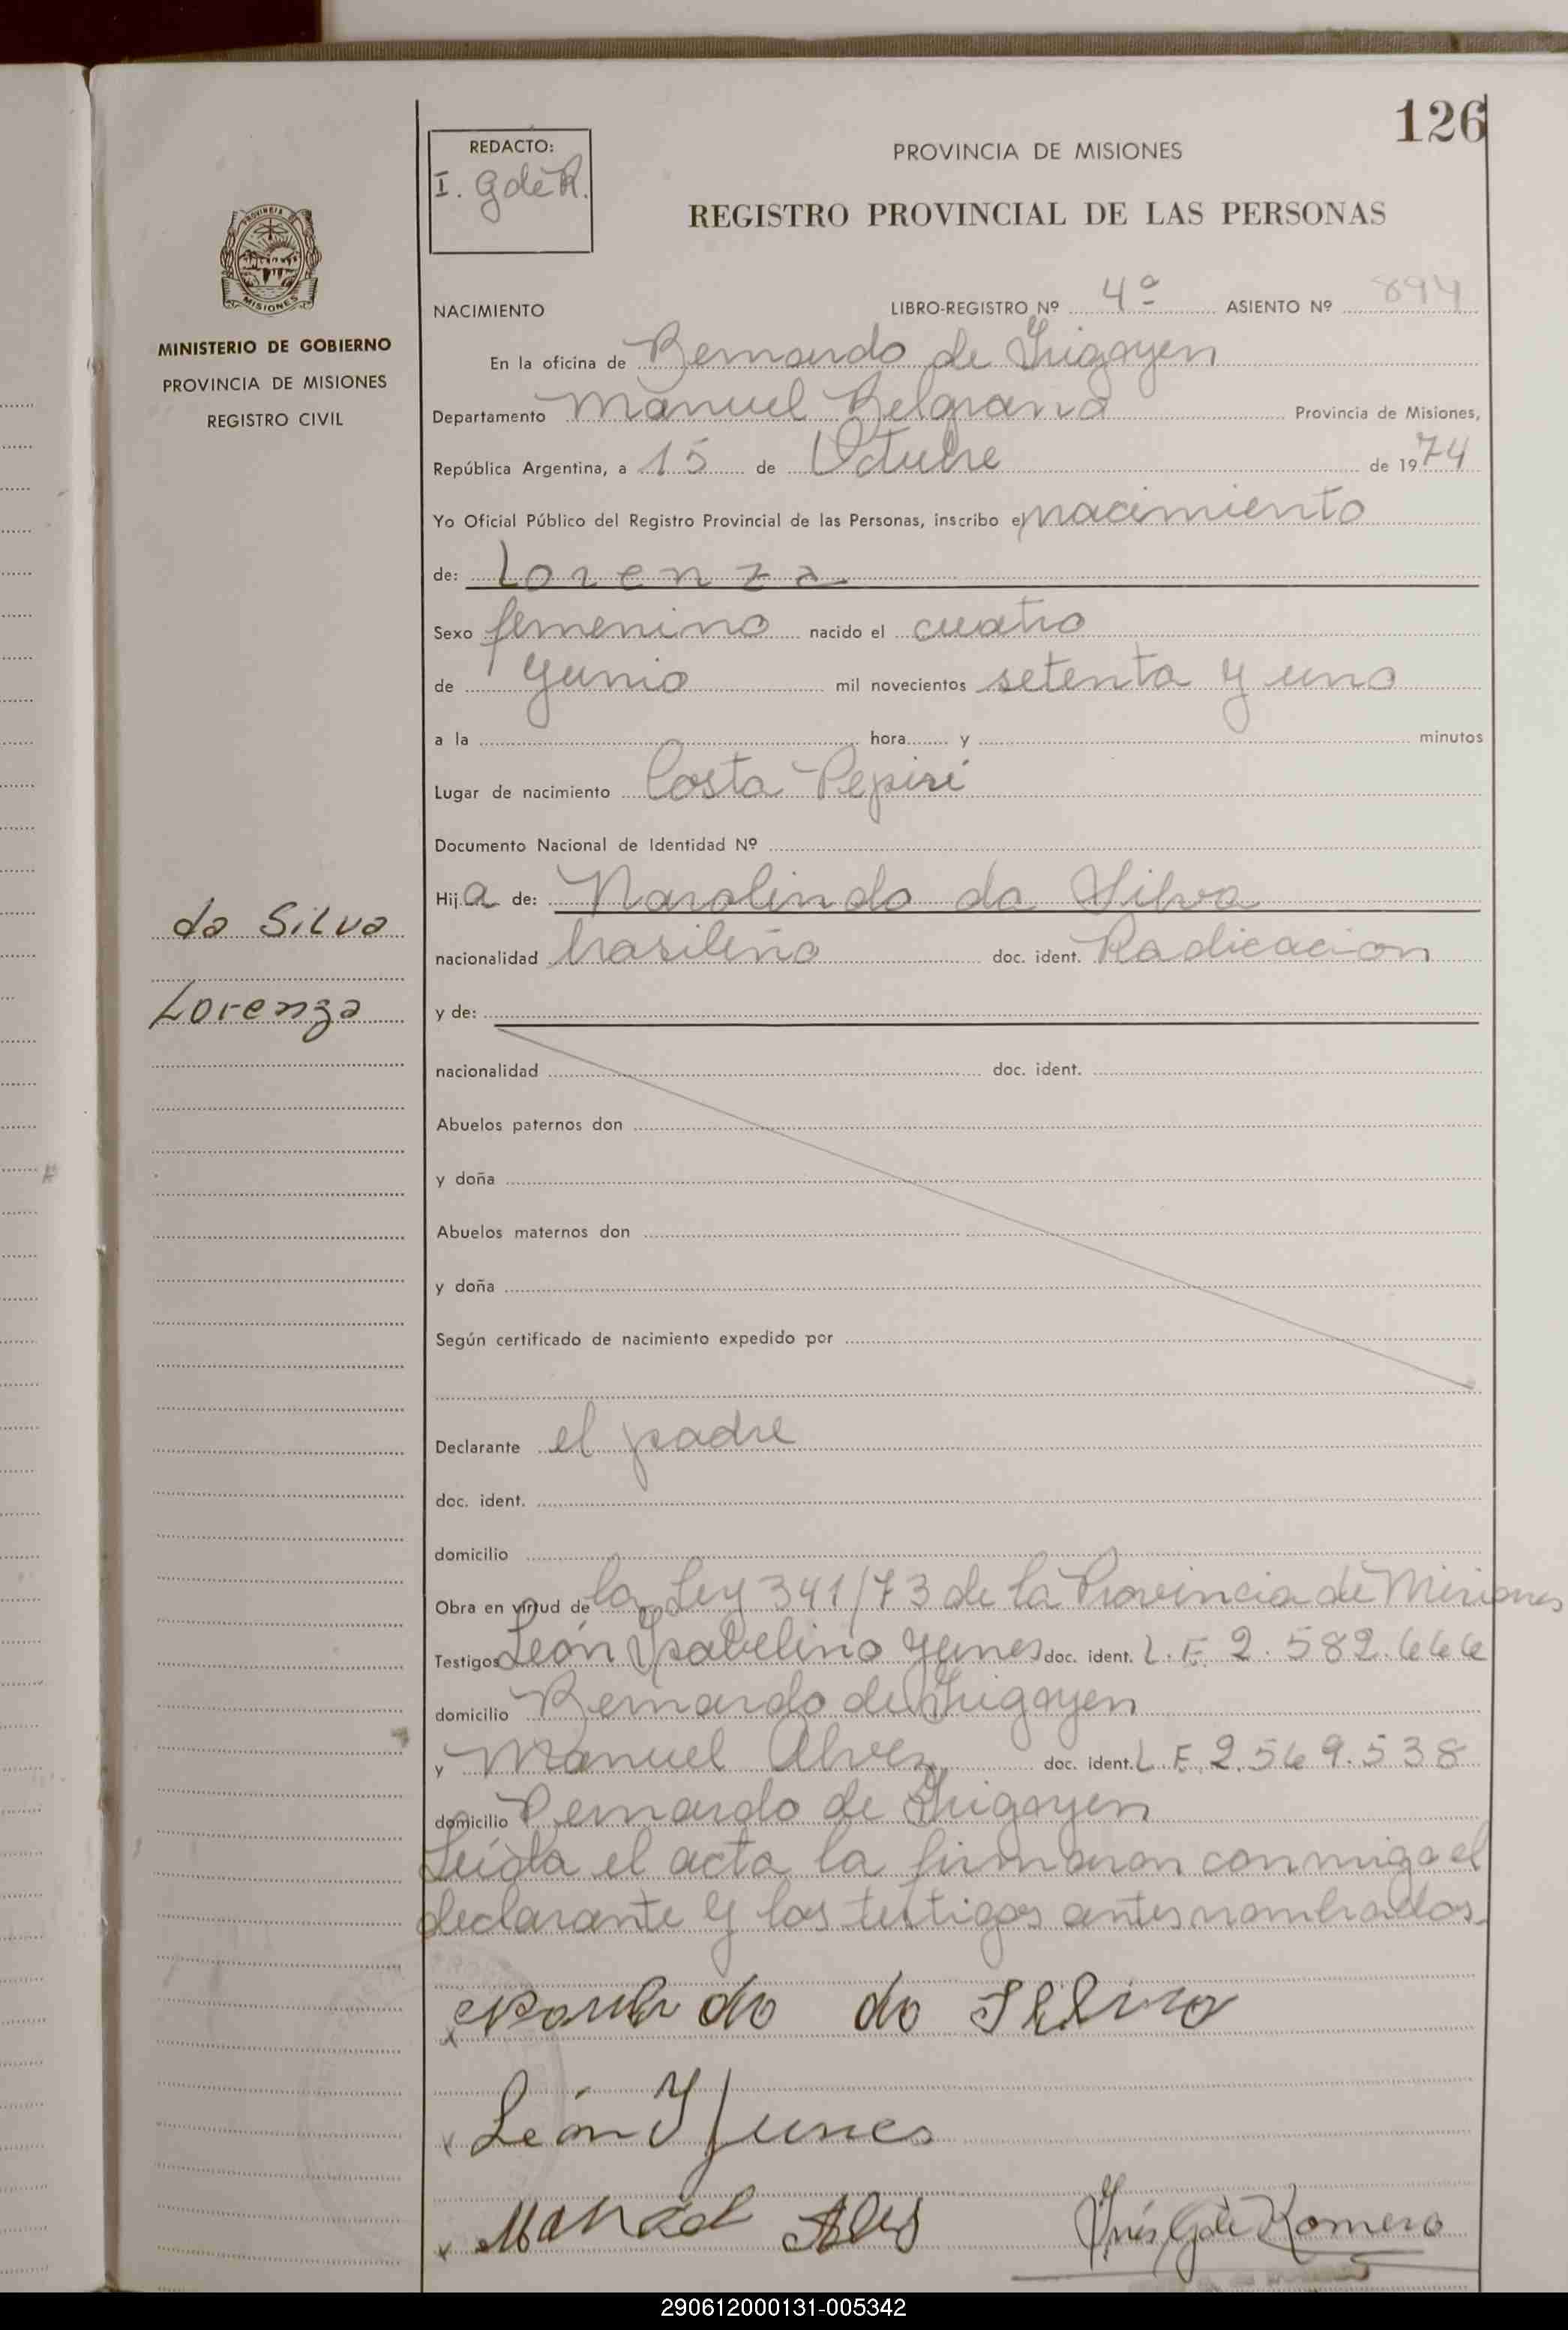 126
REDACTO:
I. G de R.
PROVINCIA DE MISIONES
REGISTRO PROVINCIAL DE LAS PERSONAS
MISIONES
MINISTERIO DE GOBIERNO
PROVINCIA DE MISIONES
REGISTRO CIVIL
NACIMIENTO LIBRO-REGISTRO Nº 4º ASIENTO Nº 894
En la oficina de Bernardo de Irigoyen
Departamento Manuel Belgrano Provincia de Misiones,
República Argentina, a 15 de Octubre de 1974
Yo Oficial Público del Registro Provincial de las Personas, inscribo el nacimiento
de: Lorenza
Sexo femenino nacido el cuatro
de Junio mil novecientos setenta y uno
a la hora y minutos
Lugar de nacimiento Costa Pepirí
Documento Nacional de Identidad Nº
Hija de: Narolindo da Silva
da Silva
nacionalidad brasileño doc. ident. Radicacion
Lorenza
y de:
nacionalidad doc. ident.
Abuelos paternos don
y doña
Abuelos maternos don
y doña
Según certificado de nacimiento expedido por
Declarante el padre
doc. ident.
domicilio
Obra en virtud de la Ley 341/73 de la Provincia de Misiones
Testigos León Ysabelino Yunes doc. ident. L.E. 2.582.666
domicilio Bernardo de Irigoyen
y Manuel Alvez doc. ident. L.E. 2.569.538
domicilio Bernardo de Irigoyen
Leída el acta la firmaron conmigo el
declarante y los testigos antes nombrados.
do Silva
x León Y Yunes
x Manoel Alves Inés G de Romero
290612000131-005342